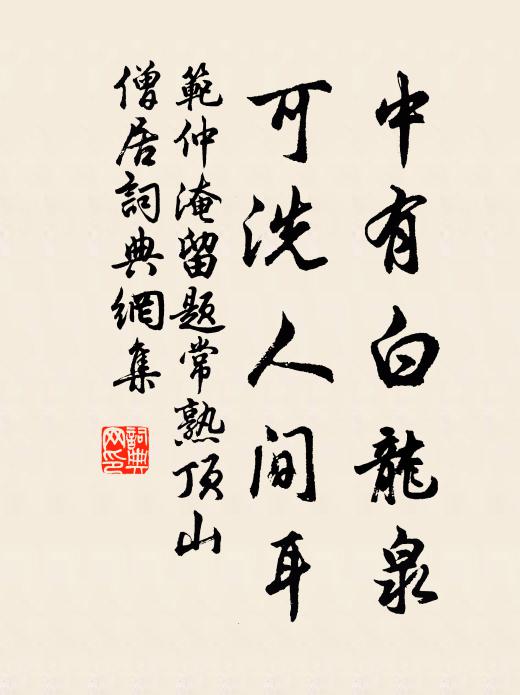 中有白龍泉
可洗人間耳
範仲淹留題常熟頂山
僧居詞典網集
詞典網印